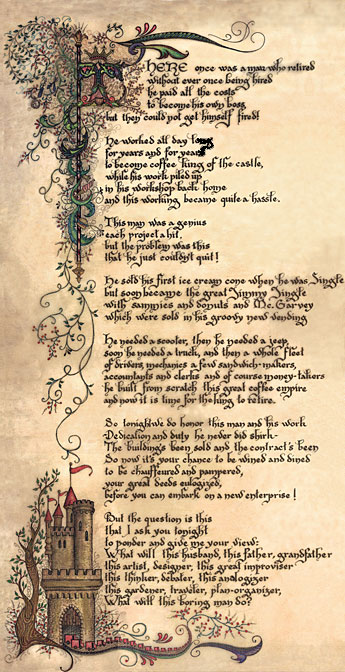 THERE once was a man who retired
without ever once being hired
he paid all the costs
to become his own boss
but then could not get himself fired!
He worked all day long
for years and for years
to become coffee king of the castle,
while his work piled up
in his workshop back home
and this working became quite a hassle.
This man was a genius
each project a hit,
but the problem was this
that he just couldn't quit!
He sold his first ice cream cone when he was Single
but soon became the great Jimmy Jingle
with sammies and donuts and Mc.Garvey
which were sold in his groovy new vending
He needed a scooter, then he needed a jeep,
soon he needed a truck, and then a whole fleet
of drivers, mechanics a few sandwich-makers,
accountants and clerks and of course money-takers
he built from scratch this great coffee empire
and now it is time for the king to retire.
So tonight we do honor this man and his work
Dedication and duty he never did shirk-
The building's been sold and the contract's been
So now it's your chance to be wined and dined
to be chauffeured and pampered,
your great deeds eulogized,
before you can embark on a new enterprise!
But the question is this
that I ask you tonight
to ponder and give me your view:
What will this husband, this father, grandfather
this artist, designer, this great improviser
this thinker, debater, this analogizer
this gardener, traveler, plan-organizer,
What will this boring man do?